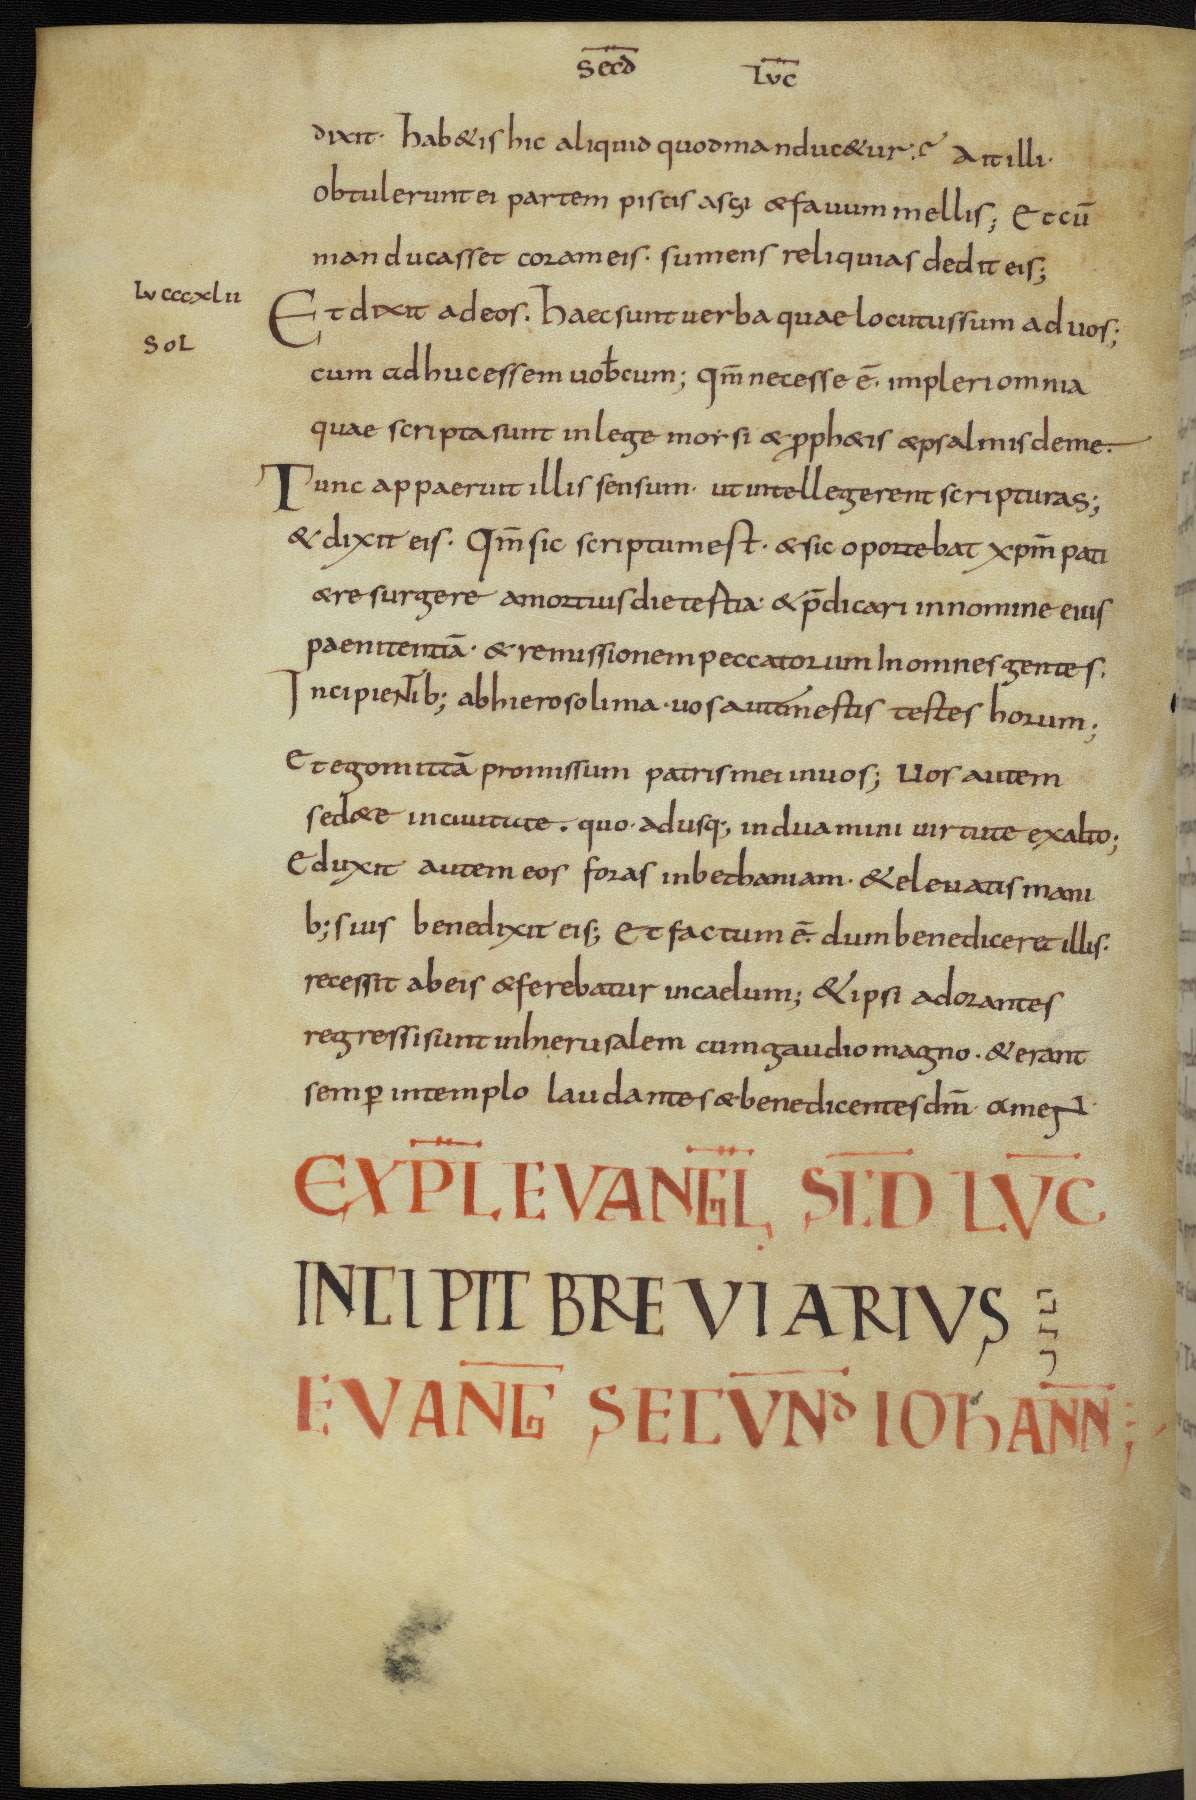 Secd Luc
dixit· hab&is hic aliquid quod manduc&ur:? At illi·
obtulerunt ei partem piscis assi & fauum mellis; Et cū
manducasset coram eis· sumens reliquias dedit eis;
Lu cccxlii
Sol
Et dixit ad eos. haec sunt uerba quae locutus sum ad uos;
cum adhuc essem uobcum; Qm̄ necesse ē· impleri omnia
quae scripta sunt in lege morsi & pph&is & psalmis de me·
Tunc appaeruit illis sensum· ut intellegerent scripturas;
& dixit eis· Qm̄ sic scriptum est· & sic oportebat xpm̄ pati
& resurgere a mortuis die testia· & p̄dicari in nomine eius
paenitentiā· & remissionem peccatorum In omnes gentes·
Incipientib; ab hierosolima· uos autem estis testes horum;
Et ego mittā promissum patris mei in uos; Uos autem
sed&e in ciuitate· quo·adusq; induamini uirtute ex alto;
Eduxit autem eos foras in bethaniam· & eleuatis mani
b; suis benedixit eis; Et factum ē· dum benediceret illis·
recessit ab eis & ferebatur in caelum; & ipsi adorantes
regressi sunt in hierusalem cum gaudio magno· & erant
semp in templo laudantes & benedicentes dm̄· amen
EXPL EVANGL SCD LVC
INCIPIT BREVIARIVS
EVANG SECVND IOHANN;